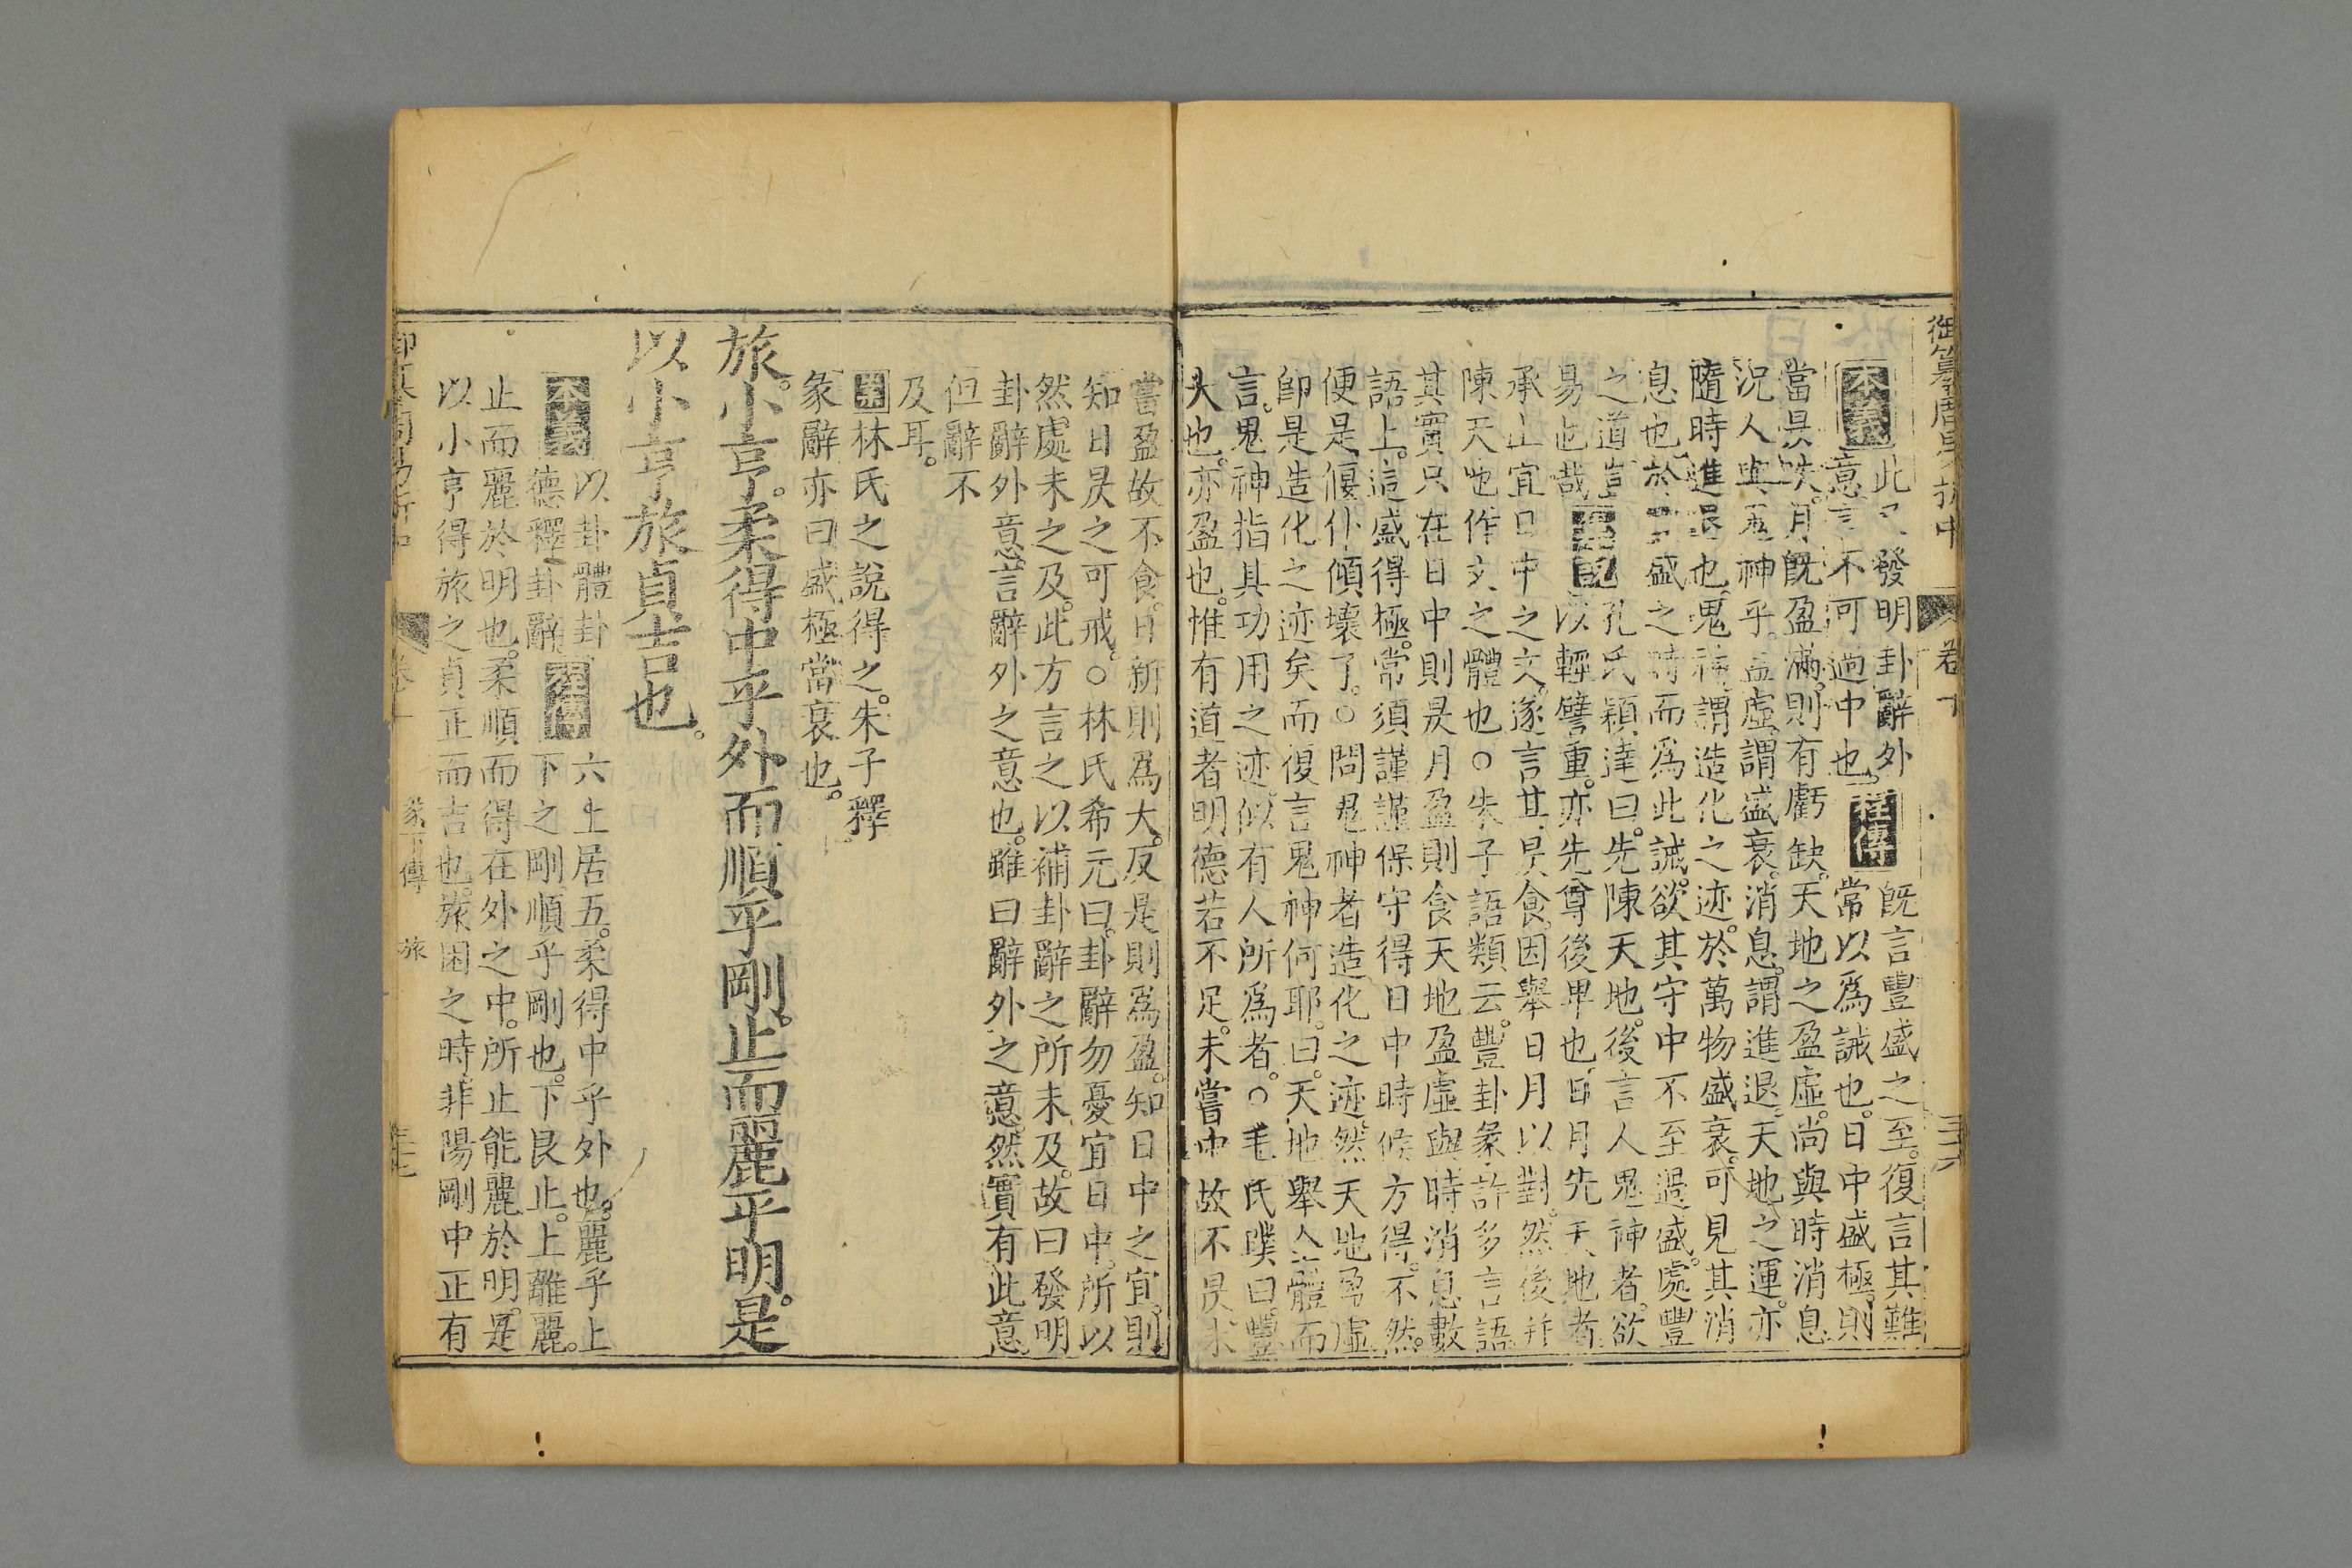 御纂周易折中 卷十 三六
本義 此又發明卦辭外
意言不可過中也 程傳 既言豐盛之至。復言其難
常以爲誡也。日中盛極。則
當昃昳。月既盈滿。則有虧缺。天地之盈虛。尚與時消息
況人與鬼神乎。盈虛。謂盛衰。消息。謂進退。天地之運。亦
隨時進退也。鬼神。謂造化之迹。於萬物盛衰。可見其消
息也。於豐盛之時而爲此誡。欲其守中不至過盛。處豐
之道豈
易也哉 集說 孔氏穎達曰。先陳天地。後言人鬼神者。欲
以輕譬重。亦先尊後卑也。日月先天地者
承上宜日中之文。遂言其昃食。因舉日月以對。然後并
陳天地作文之體也○朱子語類云。豐卦彖許多言語
其實只在日中則昃月盈則食天地盈虛與時消息數
語上。這盛得極。常須謹謹保守得日中時候方得。不然。
便是偃仆傾壞了。○問鬼神者造化之迹。然天地盈虛
卽是造化之迹矣而復言鬼神何耶。曰。天地舉全體而
言。鬼神指其功用之迹。似有人所爲者。○毛氏璞曰。豐
大也。亦盈也。惟有道者明德若不足。未嘗中故不昃未
嘗盈故不食。日新則爲大。反是則爲盈。知日中之宜。則
知日昃之可戒。○林氏希元曰。卦辭勿憂宜日中。所以
然處未之及。此方言之以補卦辭之所未及。故曰發明
卦辭外意。言辭外之意也。雖曰辭外之意。然實有此意
但辭不
及耳。
案 林氏之說得之。朱子釋
彖辭亦曰盛極當衰也。
旅。小亨。柔得中乎外而順乎剛。止而麗乎明。是
以小亨旅貞吉也。
本義 以卦體卦
德釋卦辭 程傳 六上居五。柔得中乎外也。麗乎上
下之剛。順乎剛也。下艮止。上離麗。
止而麗於明也。柔順而得在外之中。所止能麗於明。是
以小亨得旅之貞正而吉也。旅困之時。非陽剛中正有
御纂周易折中 卷十 彖下傳 旅 三七